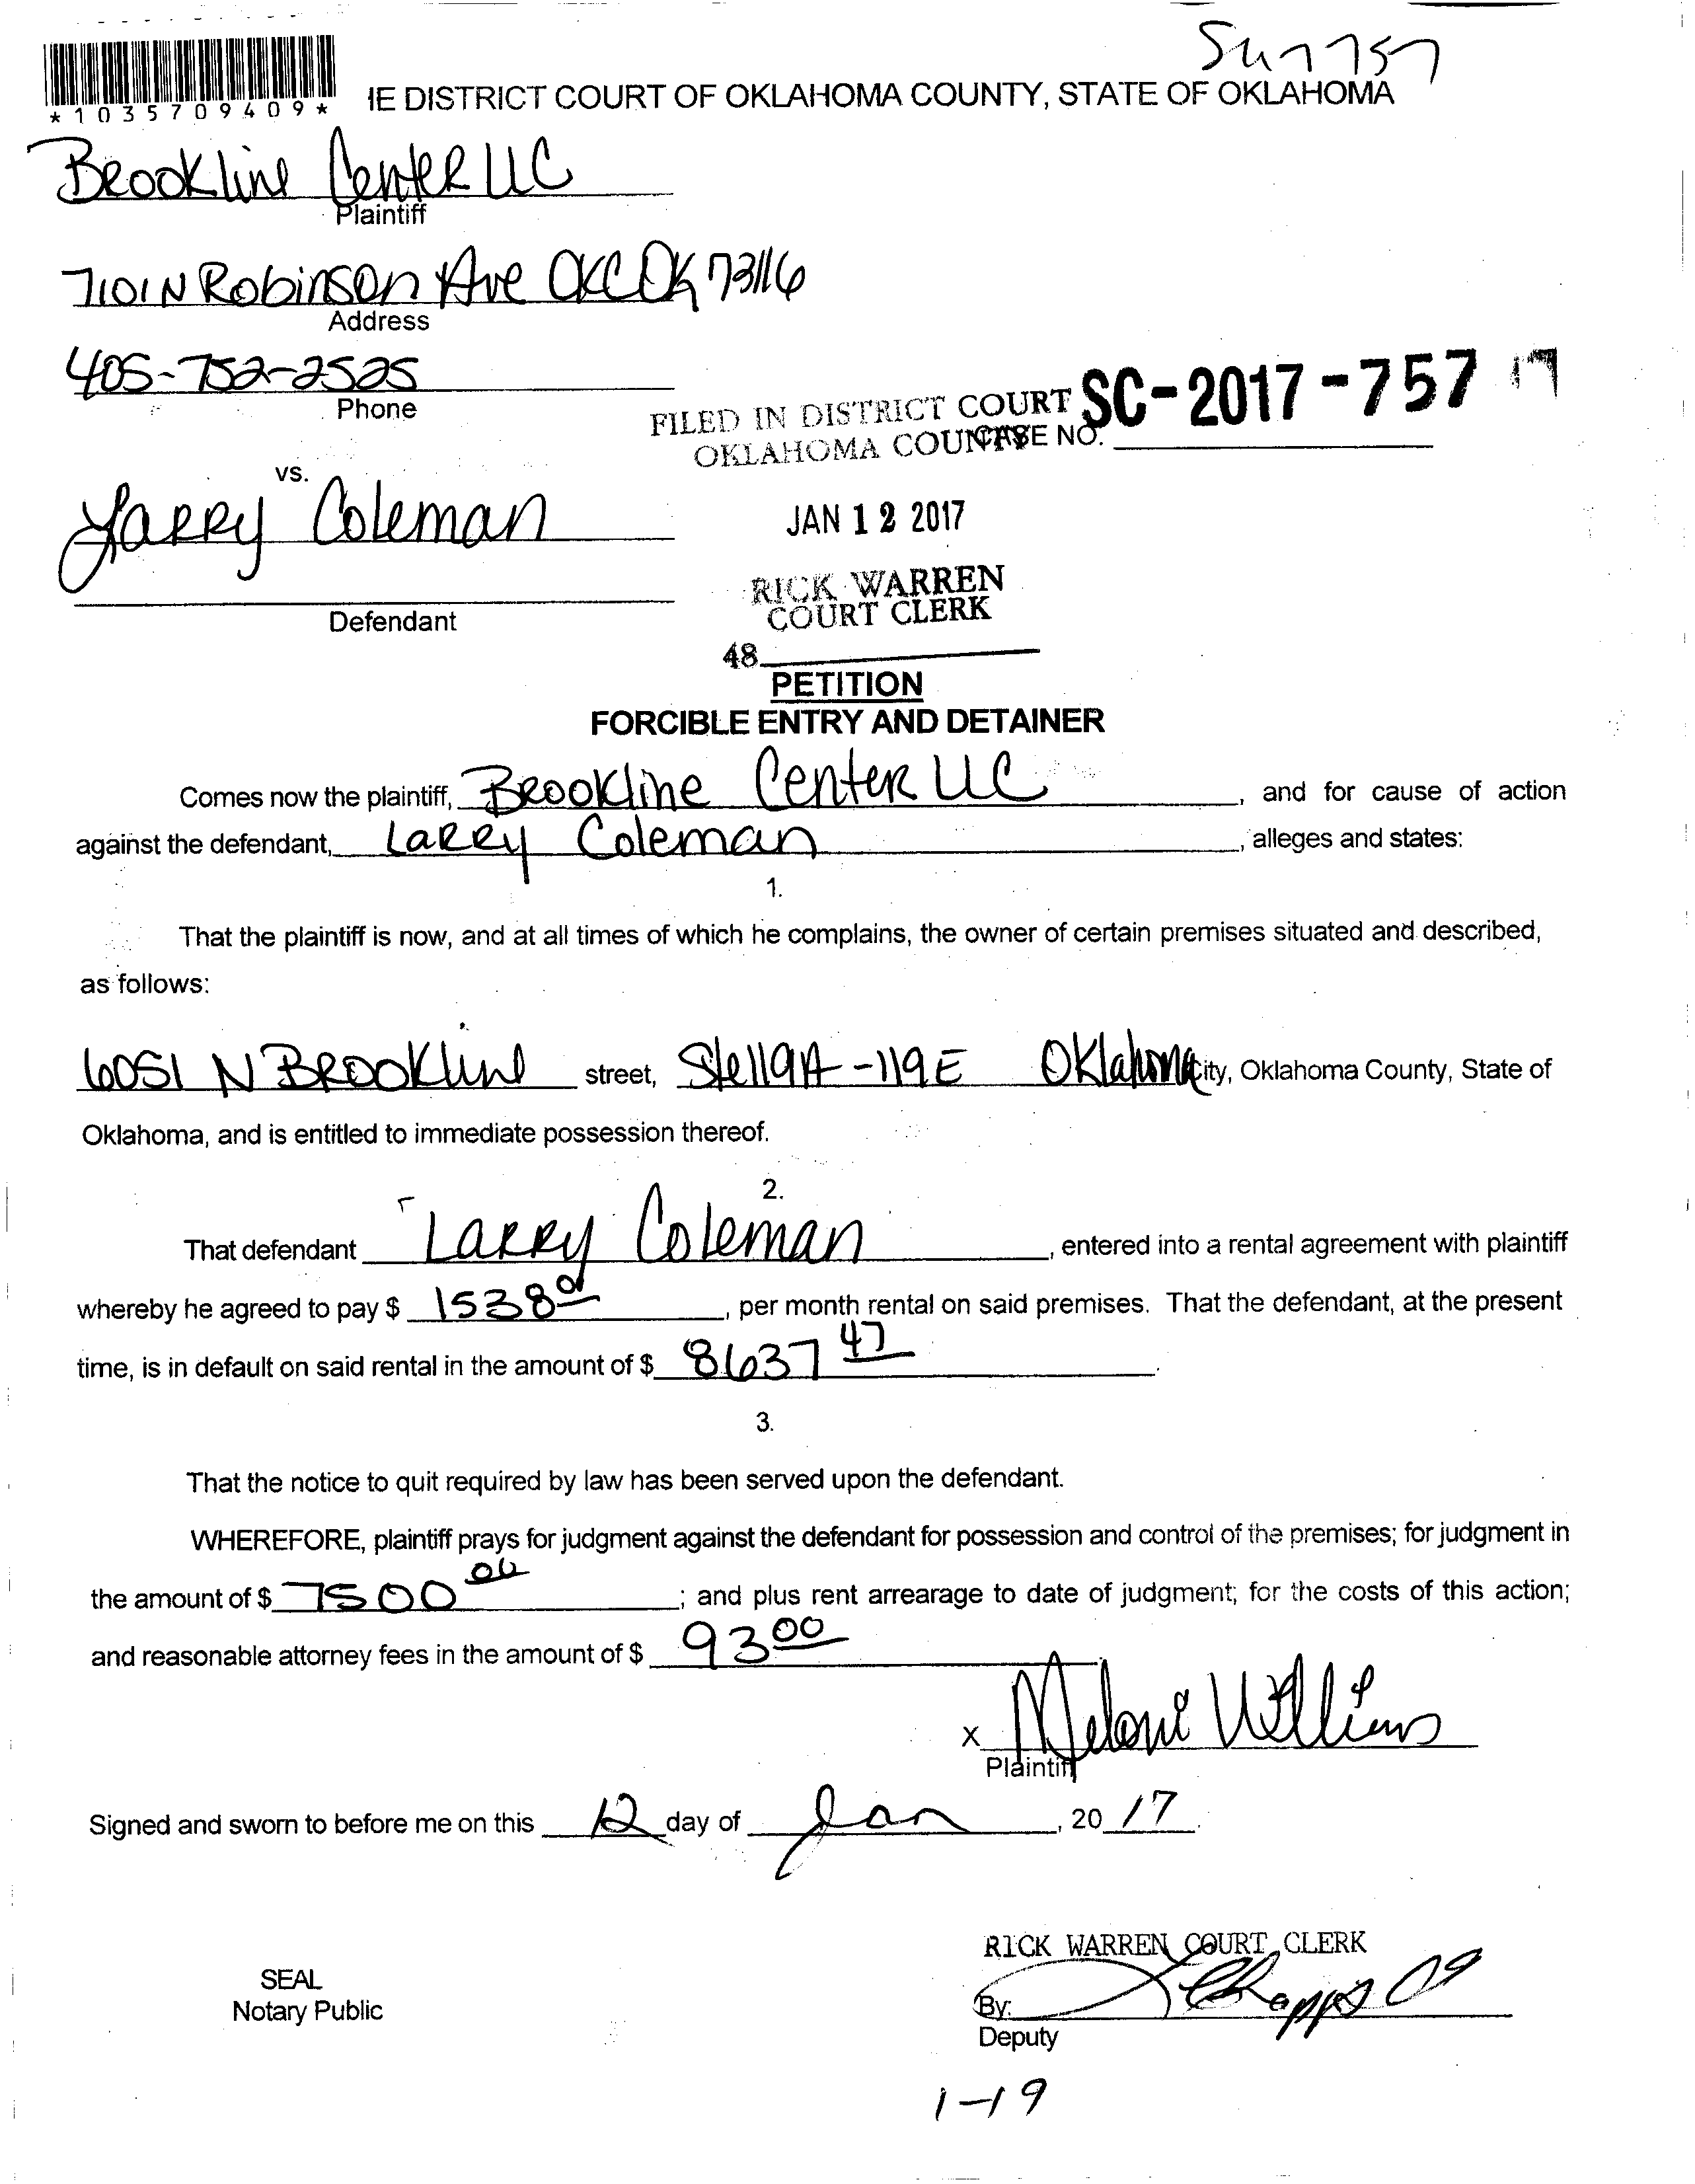 *1035709409*
IE DISTRICT COURT OF OKLAHOMA COUNTY, STATE OF OKLAHOMA
Brookline Center LLC
Plaintiff
7101 N Robinson Ave OKC OK 73116
Address
405-752-2525
Phone
FILED IN DISTRICT COURT SC-2017-757
OKLAHOMA COUNTY CASE NO.
vs.
Larry Coleman
JAN 12 2017
RICK WARREN
COURT CLERK
Defendant
48
PETITION
FORCIBLE ENTRY AND DETAINER
Comes now the plaintiff, Brookline Center LLC, and for cause of action
against the defendant, Larry Coleman, alleges and states:
1.
That the plaintiff is now, and at all times of which he complains, the owner of certain premises situated and described,
as follows:
6051 N Brookline street, 119E Oklahoma City, Oklahoma County, State of
Oklahoma, and is entitled to immediate possession thereof.
2.
That defendant Larry Coleman, entered into a rental agreement with plaintiff
whereby he agreed to pay $ 1538 00, per month rental on said premises. That the defendant, at the present
time, is in default on said rental in the amount of $ 8637 47.
3.
That the notice to quit required by law has been served upon the defendant.
WHEREFORE, plaintiff prays for judgment against the defendant for possession and control of the premises; for judgment in
the amount of $ 7500 00; and plus rent arrearage to date of judgment; for the costs of this action;
and reasonable attorney fees in the amount of $ 93 00
x Meloni Williams
Plaintiff
Signed and sworn to before me on this 12 day of Jan, 20 17.
RICK WARREN COURT CLERK
SEAL
Notary Public
By:
Deputy
1-19